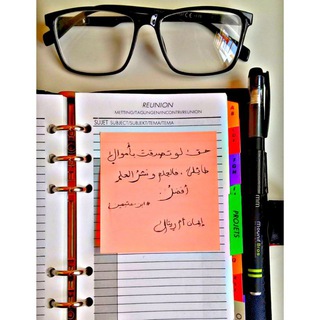 REUNION
MEETING/TAGUNGEN/INCONTRI/REUNION
SUJET SUBJECT/SUBJEKT/TEMA/TEMA
حتى لو تصدقت بأموال
طائلة، فالعلم ونشر العلم
أفضل
ابن عثيمين
إيمان أم ريتال
PROJETS